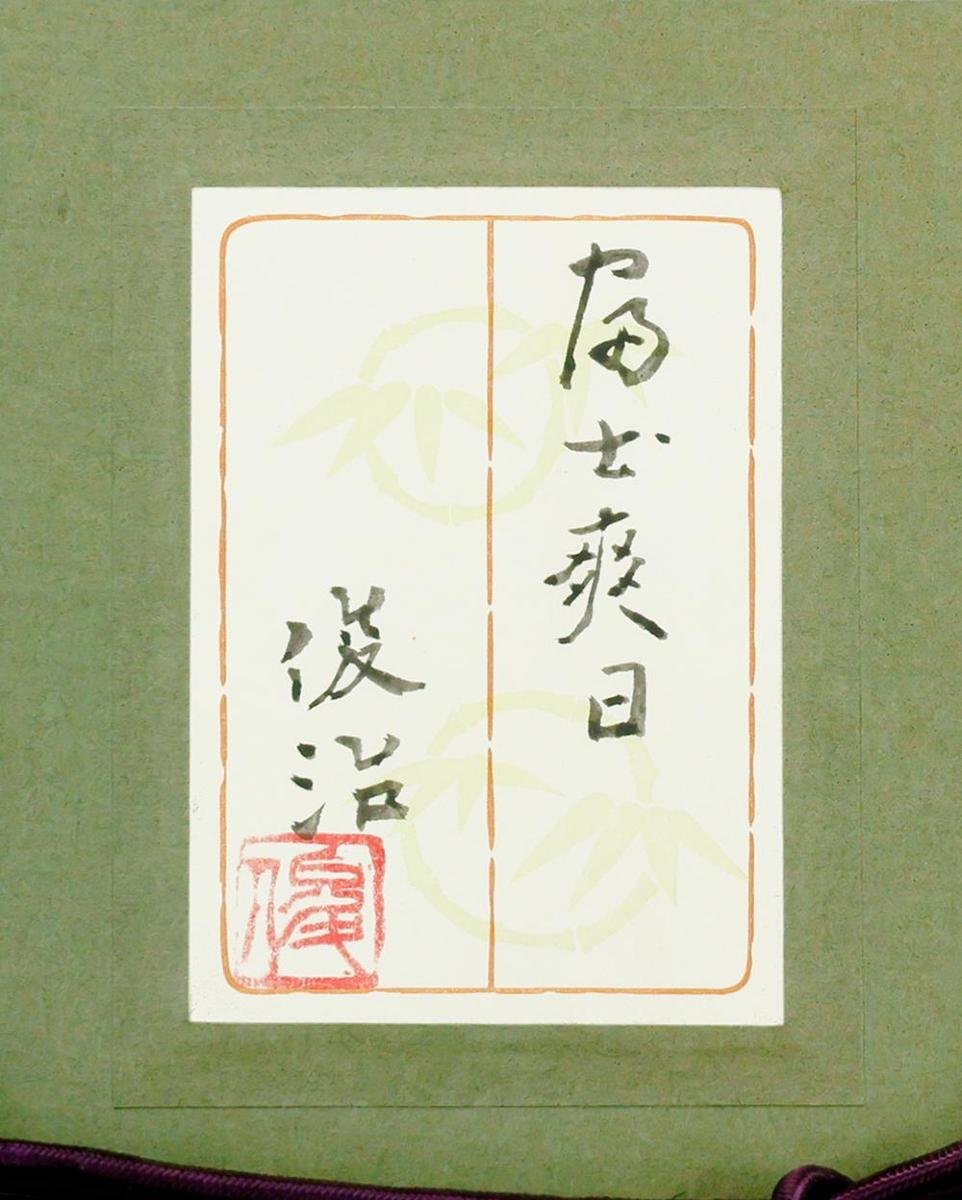 富士爽日
俊治
俊